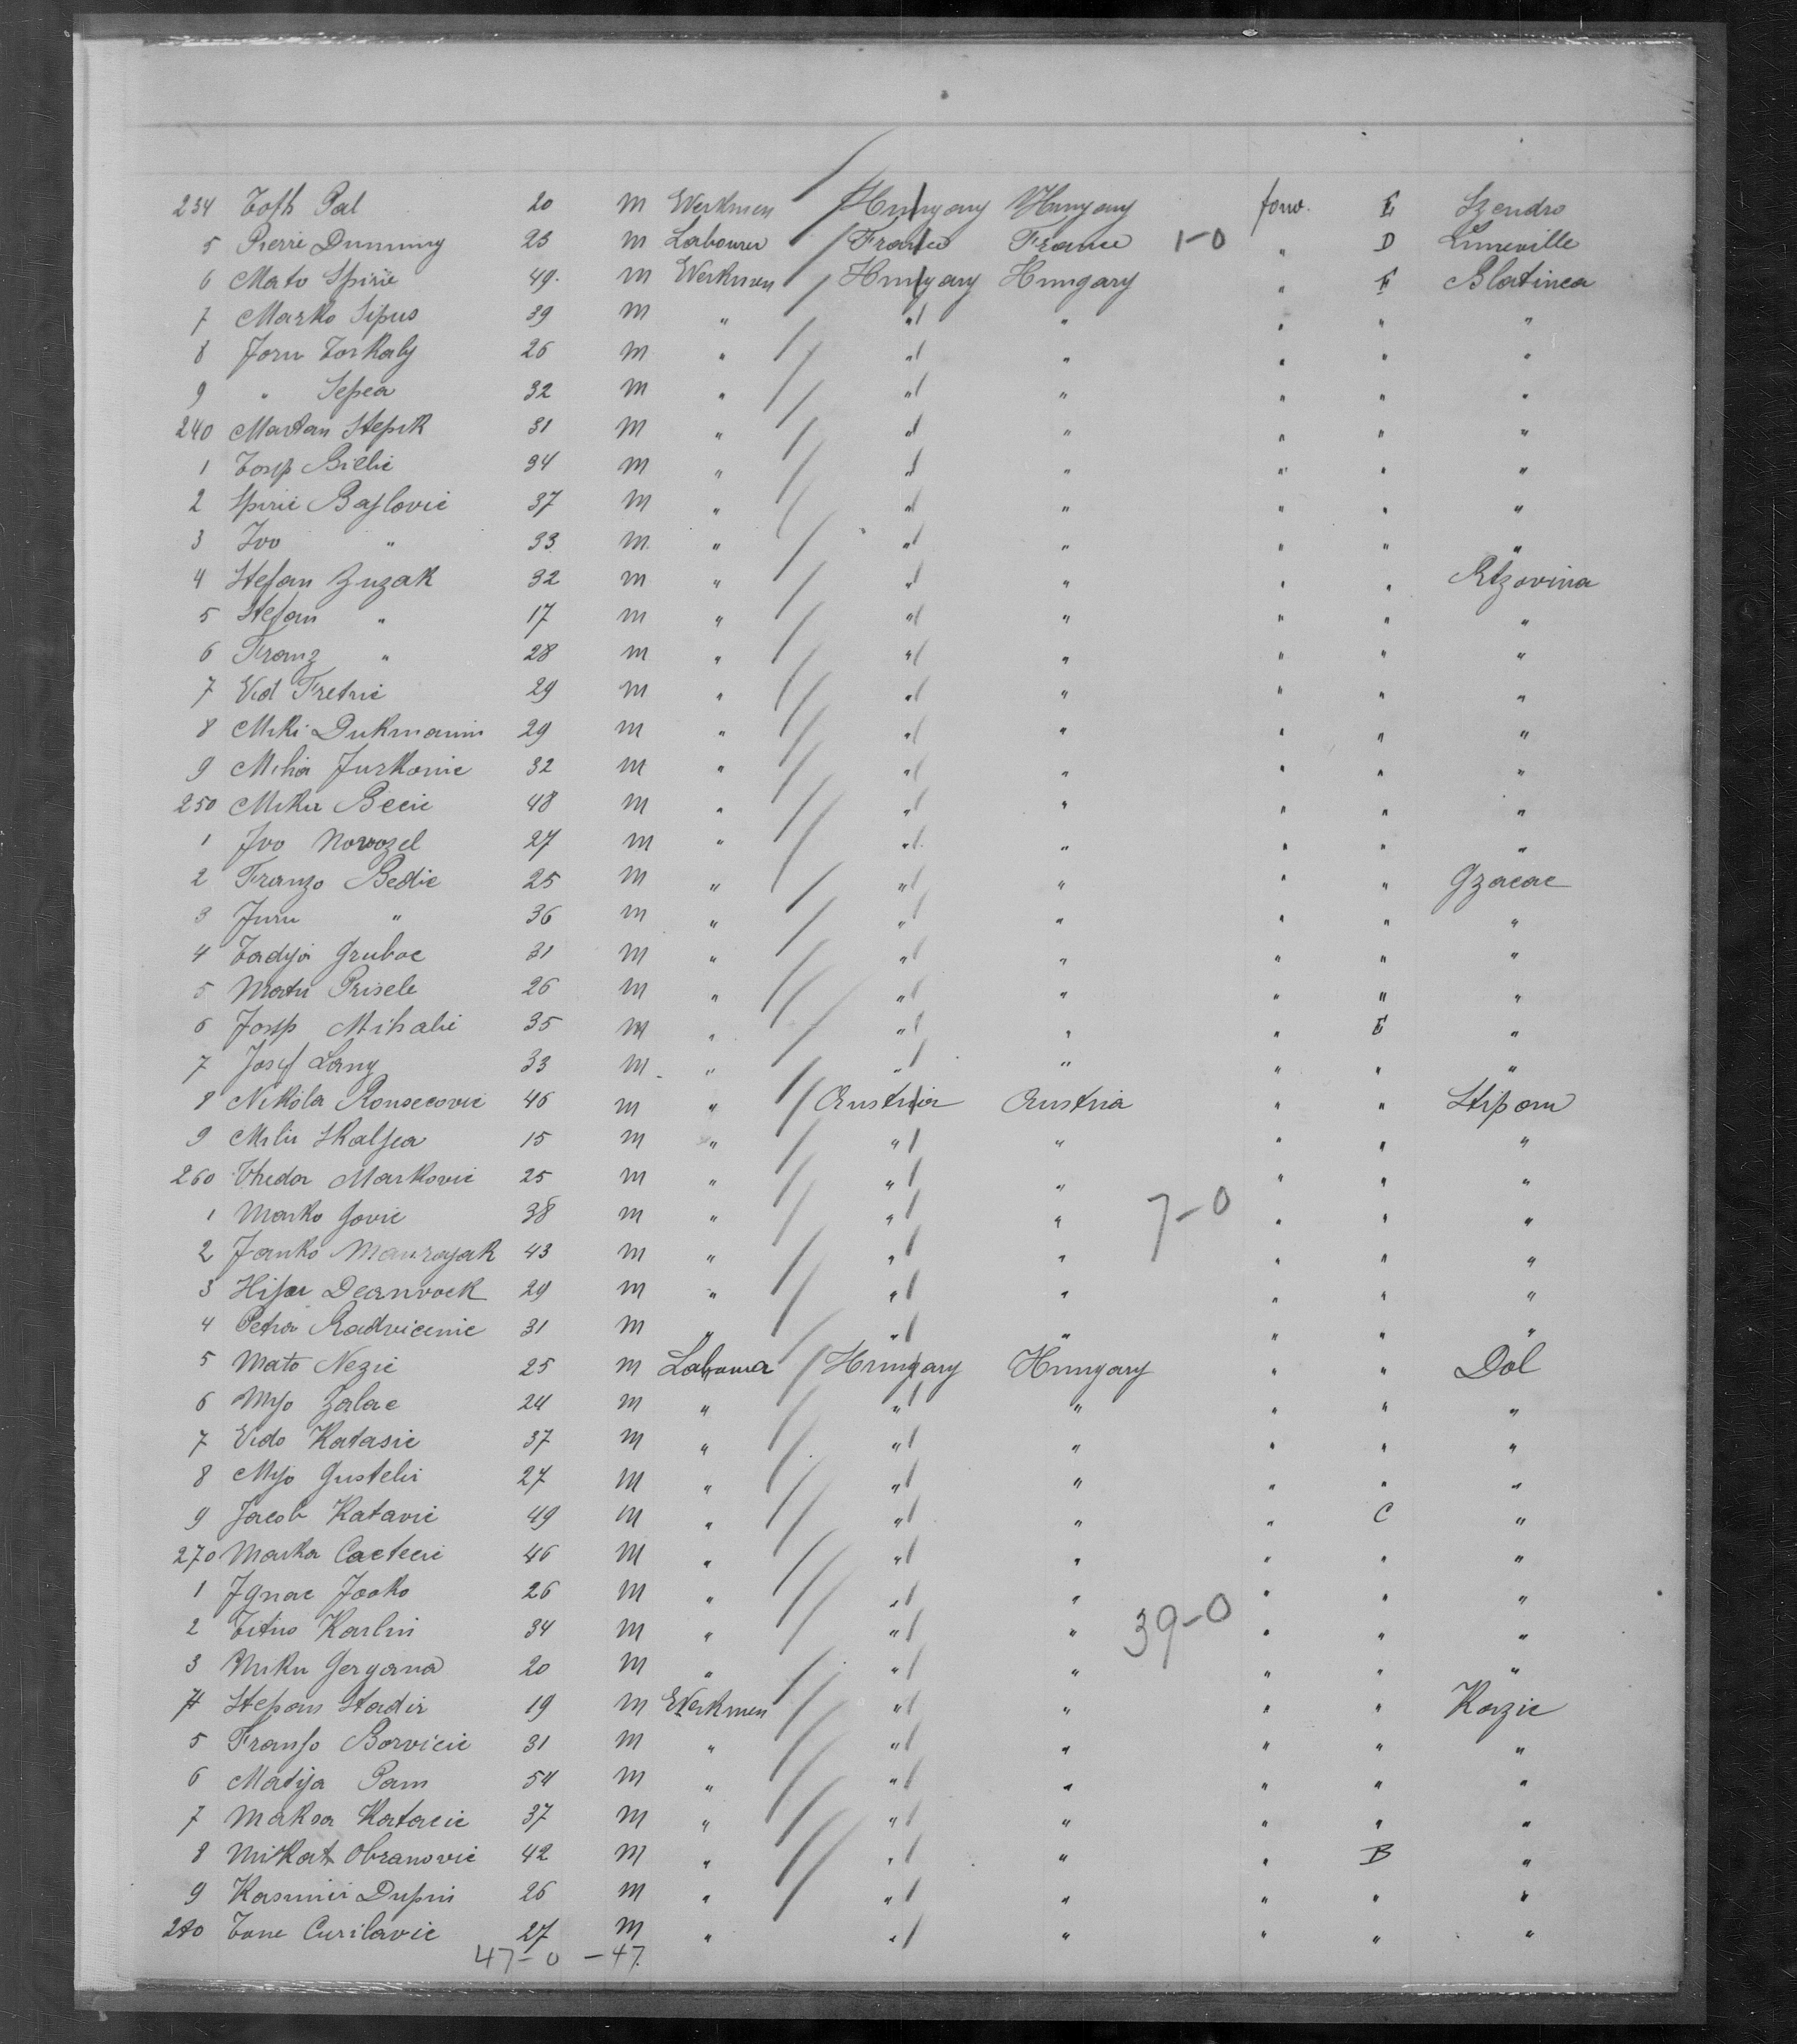 234 Toth Pal 20 m Werkmen Hungary Hungary forw. E Szendro
5 Pierre Dunning 23 m Labourer France France 1-0 " D Luneville
6 Mato Spirie 49 m Werkmen Hungary Hungary " E Blatinea
7 Marko Sipus 39 m " " " " " "
8 Joru Torkaly 26 m " " " " " "
9 " Sepea 32 m " " " " " "
240 Martan Stepik 31 m " " " " " "
1 Tosip Bilie 34 m " " " " " "
2 Spirie Baflovie 37 m " " " " " "
3 Ivo " 33 m " " " " " "
4 Stefan Zuzak 32 m " " " " " Rtzovina
5 Stefan " 17 m " " " " " "
6 Franz " 28 m " " " " " "
7 Vid Fretrie 29 m " " " " " "
8 Miki Dukmanin 29 m " " " " " "
9 Miha Jurkonie 32 m " " " " " "
250 Miku Becie 48 m " " " " " "
1 Ivo Novozel 27 m " " " " " "
2 Franzo Bedie 25 m " " " " " Gzacac
3 Juru " 36 m " " " " " "
4 Tadija Grubac 31 m " " " " " "
5 Matu Prisele 26 m " " " " " "
6 Josip Mihalie 35 m " " " " E "
7 Josef Lang 33 m " " " " " "
8 Nikola Ronocovie 46 m " Austria Austria " " Stipom
9 Milu Skalfea 15 m " " " " " "
260 Thedor Markovie 25 m " " " " " "
1 Marko Govie 38 m " " " 7-0 " " "
2 Janko Manrajak 43 m " " " " " "
3 Hifar Deanvock 29 m " " " " " "
4 Petra Radvicenie 31 m " " " " " "
5 Mato Nezie 25 m Labourer Hungary Hungary " " Dol
6 Mijo Zalac 24 m " " " " " "
7 Vido Katasie 37 m " " " " " "
8 Mijo Gustelu 27 m " " " " " "
9 Jacob Katavie 49 m " " " " C "
270 Marka Cactecie 46 m " " " " " "
1 Ignac Jooko 26 m " " " " " "
2 Titus Karlin 34 m " " " 39-0 " " "
3 Miku Gergana 20 m " " " " " "
4 Stepan Stadir 19 m Werkmen " " " " Kazie
5 Franfo Borvicie 31 m " " " " " "
6 Matija Pam 54 m " " " " " "
7 Maksa Katacie 37 m " " " " " "
8 Mikat Obranovie 42 m " " " " B "
9 Kasimir Dupin 26 m " " " " " "
280 Tone Curilavie 27 m " " " " " "
47-0 -47